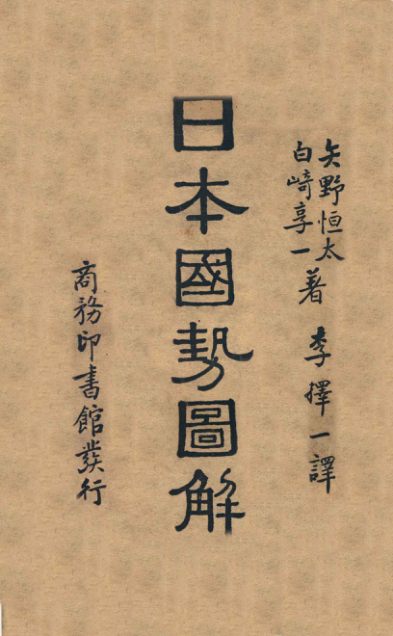 矢野恒太
白崎享一著 李擇一譯
日本國勢圖解
商務印書館發行